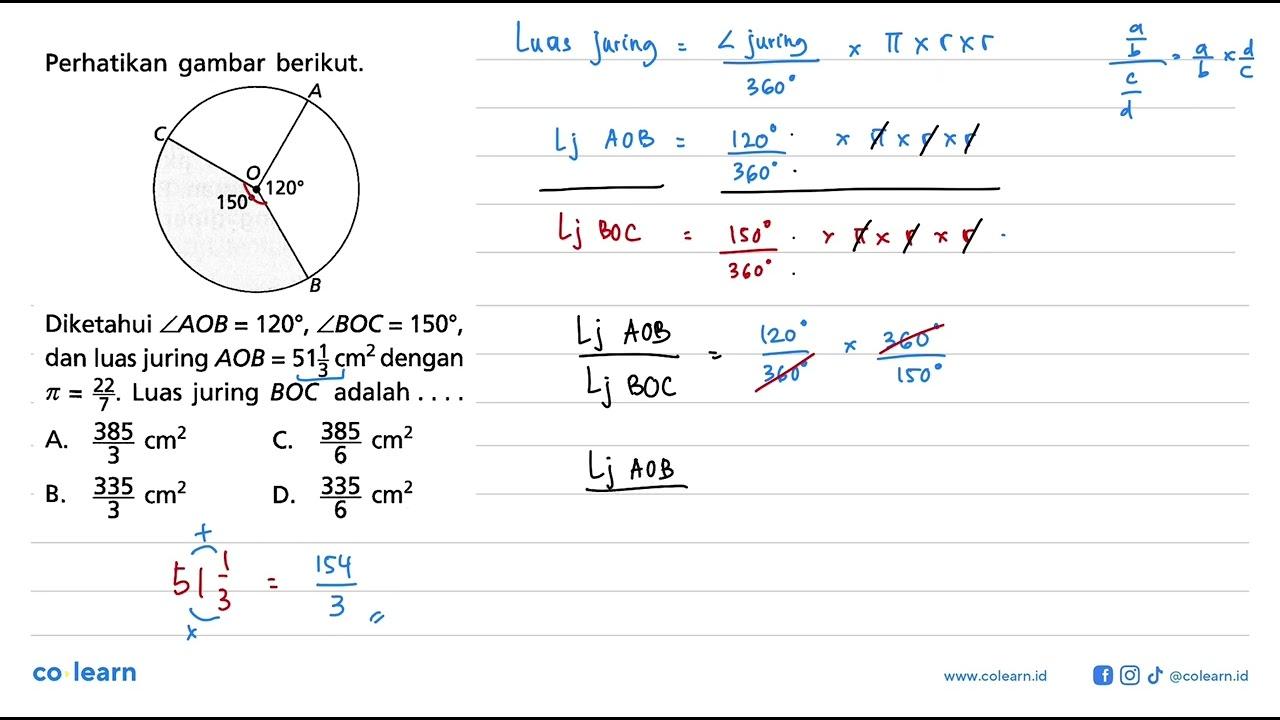 Perhatikan gambar berikut.
A
C
O
120°
150°
B
Diketahui ∠AOB = 120°, ∠BOC = 150°,
dan luas juring AOB = 51 1/3 cm² dengan
π = 22/7. Luas juring BOC adalah . . . .
A. 385/3 cm² C. 385/6 cm²
B. 335/3 cm² D. 335/6 cm²
+
51 1/3 = 154/3
x
Luas Juring = ∠ juring / 360° x π x r x r
a/b / c/d = a/b x d/c
Lj AOB = 120°/360° x π x r x r
Lj BOC = 150°/360° x π x r x r
Lj AOB / Lj BOC = 120°/360° x 360°/150°
Lj AOB
co learn
www.colearn.id @colearn.id